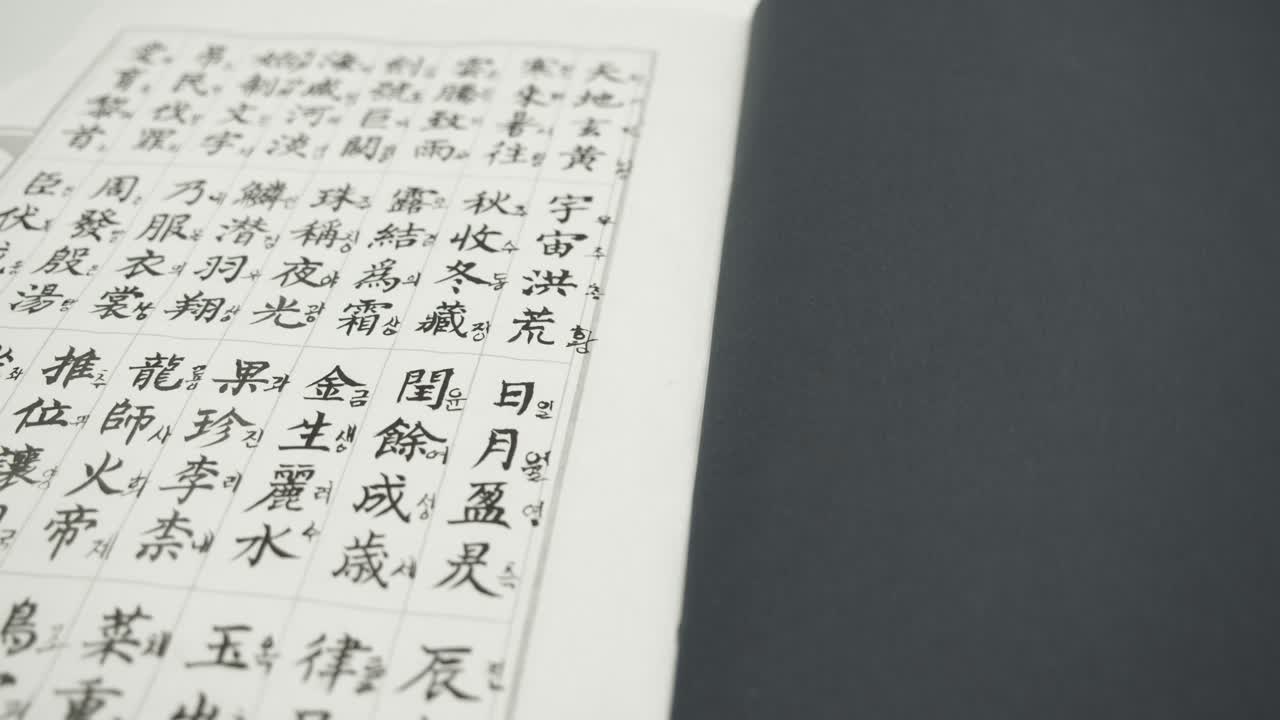 天地玄黃宇宙洪荒황日일月월盈영昃측辰진
寒來暑往秋추收수冬동藏장閏윤餘여成성歲세律률
雲騰致雨露로結결為위霜상金금生생麗려水수玉옥出
劍號巨闕珠주稱칭夜야光광果과珍진李리柰내菜채重
海鹹河淡鱗린潜잠羽우翔상龍룡師사火화帝제鳥조
始制文字乃내服복衣의裳상推추位위讓양國국
弔民伐罪周주發발殷은湯탕坐좌
愛育黎首臣신伏복戎융